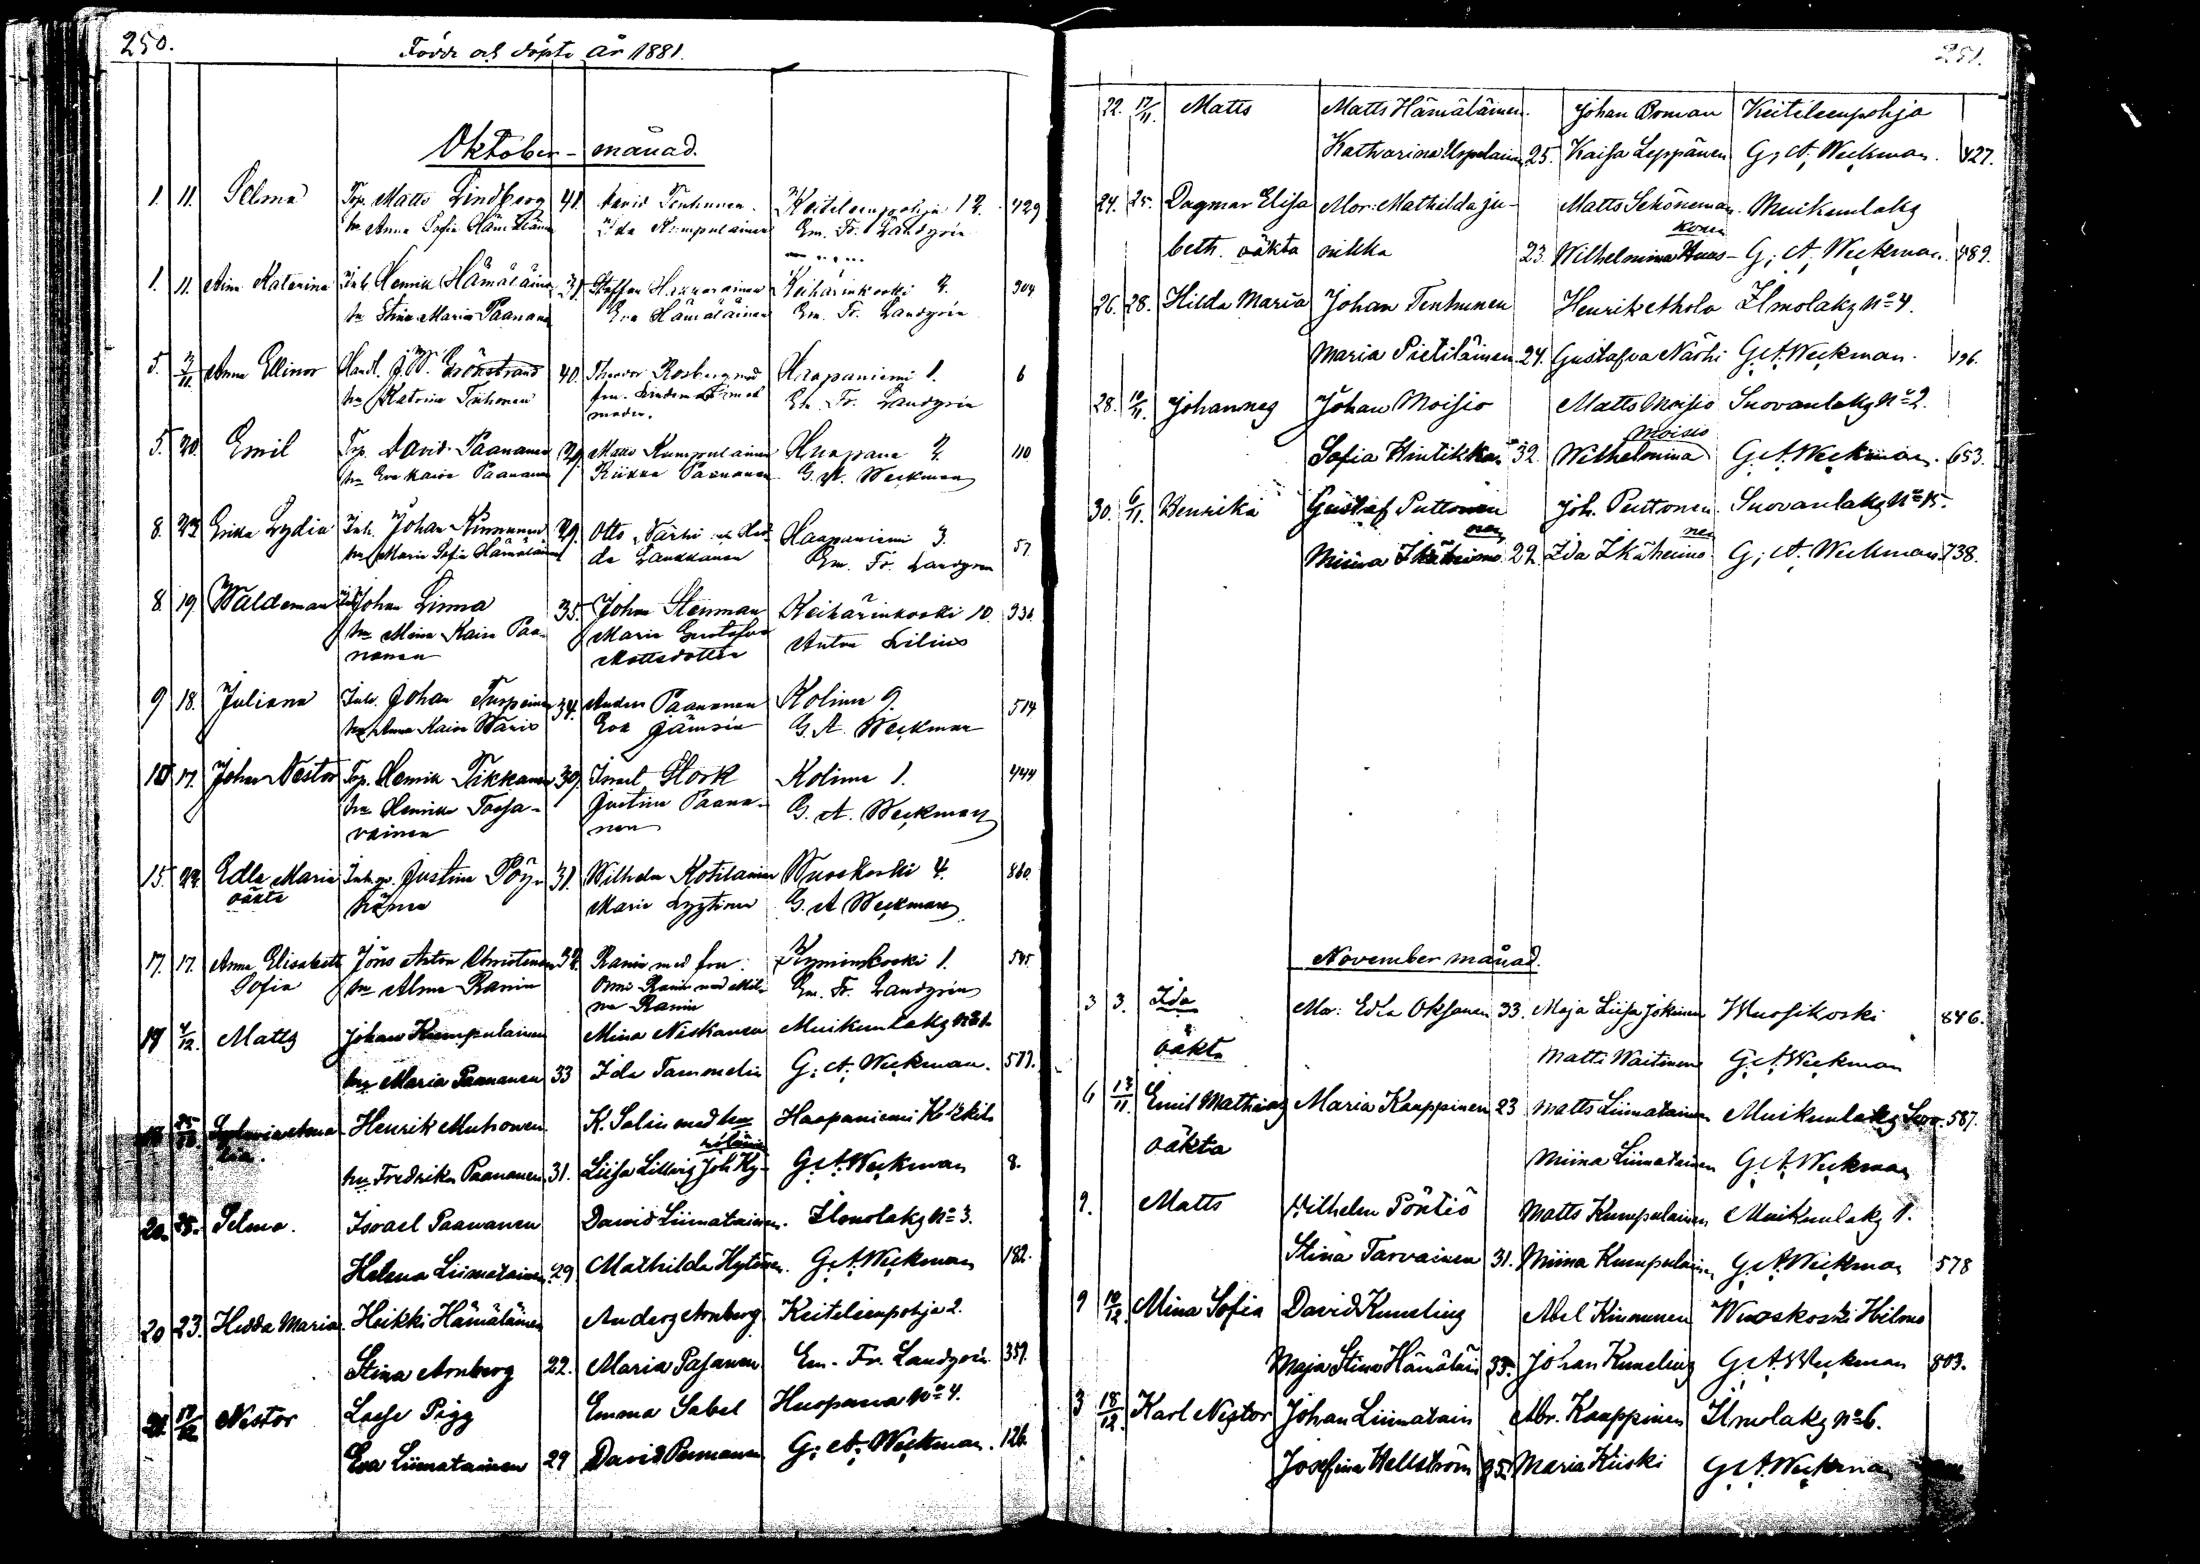 250.
Födde och döpte år 1881.
Oktober - månad.
1. 11. Selma Trp. Matts Lindberg 41. David Tenhunen Keiteleenpohja 12. 429
hu Anna Sofia Ida Kumpulainen Em. Fr. Landgrén
1. 11. Aina Katarina Inh. Henrik Hämäläinen 31. Staffan Keihärinkoski 2. 904
hu Stina Maria Paananen Eva Hämäläinen Em. Fr. Landgrén
5. 2/11. Anna Ellinor Handl. J. W. Grönstrand 40. Theodor Rosberg med Haapaniemi 1. 6
hu Katrina Tiihonen fru. Em. Fr. Landgrén
5. 20. Emil Trp. David Paananen 29. Matts Kumpulainen Huopana 2. 110
hu Eva Kaisa Paananen Riikka Paananen G. A. Weckman
8. 23. Erika Lydia Inh. Johan Kinnunen 29. Otto Närhi och Hed- Haapaniemi 3. 57.
hu Maria Sofia Hämäläinen da Laukkanen Em. Fr. Landgren
8. 19. Waldemar Inh. Johan Linna 35. Johan Stenman Keihärinkoski 10. 936
hu Miina Kaisa Paa- Maria Gustafva Anton Lilius
nanen Mattsdotter
9. 18. Juliana Inh. Johan Turpeinen 34. Anders Paananen Kolima 9. 514
hu Anna Kaisa Waris Eva Jämsén G. A. Weckman
10. 17. Johan Nestor Trp. Henrik Tikkanen 30. Israel Stork Kolima 1. 444
hu Henrika Tossa- Justina Paana- G. A. Weckman
vainen nen
15. 22. Edla Maria Inh. qv. Justina Pöy- 31. Wilhelm Kotilainen Wuoskoski 4. 860.
oäkta hönen Maria Lyytinen G. A. Weckman
17. 17. Anna Elisabeth Jöns Anton Christensen 34. Ranin med fru. Kyminkoski 1. 545.
Sofia hu Alma Ranin Ranin med Em. Fr. Landgrén
na Ranin
17 4/12. Matts Johan Kumpulainen Mina Niskanen Muikunlaks No 1.
hu Maria Paananen 33 Ida Tammelin G. A. Weckman. 577.
25/10. Henrik Muhonen K. Salin med hu Haapaniemi
hu Fredrika Paananen 31. Liisa Littvig Joh. Hy- G. A. Weckman 8.
20. 25. Selma. Israel Paananen David Liimatainen. Ilmolaks No 3.
Helena Liimatainen 29 Mathilda Hytönen. G. A. Weckman 182.
20 23. Hedda Maria. Heikki Hämäläinen Anders Arnberg Keiteleenpohja 2.
Stina Arnberg 22. Maria Pasanen Em. Fr. Landgrén 359.
21. 17/12 Nestor Lasse Pigg Emma Sabel Huopana No 4.
Eva Liimatainen 29 David Permanen G. A. Weckman. 126.
251.
22. 17/11. Matts Matts Hämäläinen. Johan Boman Keiteleenpohja
Katharina Urpulainen 25. Kaisa Leppänen G. A. Weckman. 427.
24. 25. Dagmar Elisa Mor: Mathilda Ju- Matts Schöneman. Muikunlaks
konen
beth. oäkta nikka 23. Wilhelmina Huus- G. A. Weckman. 489.
26. 28. Hilda Maria Johan Tenhunen Henrik Ahola Ilmolaks No 4.
Maria Pietiläinen 24. Gustafva Närhi G. A. Weckman. 196.
28. 10/11. Johannes Johan Moisio Matts Moisio Suovanlaks No 2.
Moisio
Sofia Hintikka 32. Wilhelmina G. A. Weckman. 653.
30. 6/11. Henrika Gustaf Puttonen Joh. Puttonen Suovanlaks No 15.
nen nen
Miina Ikäheimo 22. Ida Ikäheimo G. A. Weckman. 738.
November månad.
3 3. Ida Mor: Edla Oksanen 33. Maja Liisa Jokinen Wuosikoski 846.
oäkta Matti Waitinen G. A. Weckman
6 13/11. Emil Mathias Maria Kauppinen 23 Matts Liimatainen Muikunlaks 587.
oäkta Miina Liimatainen G. A. Weckman
9. Matts Wilhelm Pöntiö Matts Kumpulainen Muikunlaks 1.
Stina Tarvainen 31. Miina Kumpulainen G. A. Weckman 578
9 10/12. Mina Sofia David Kumeling Abel Kinnunen Wuoskoski Hilmo
Maja Stina Hämäläin 35. Johan Kumeling G. A. Weckman 803.
3 18/12. Karl Nestor Johan Liimatain Abr. Kauppinen Ilmolaks No 6.
Josefina Hellström 35. Maria Kiiski G. A. Weckman